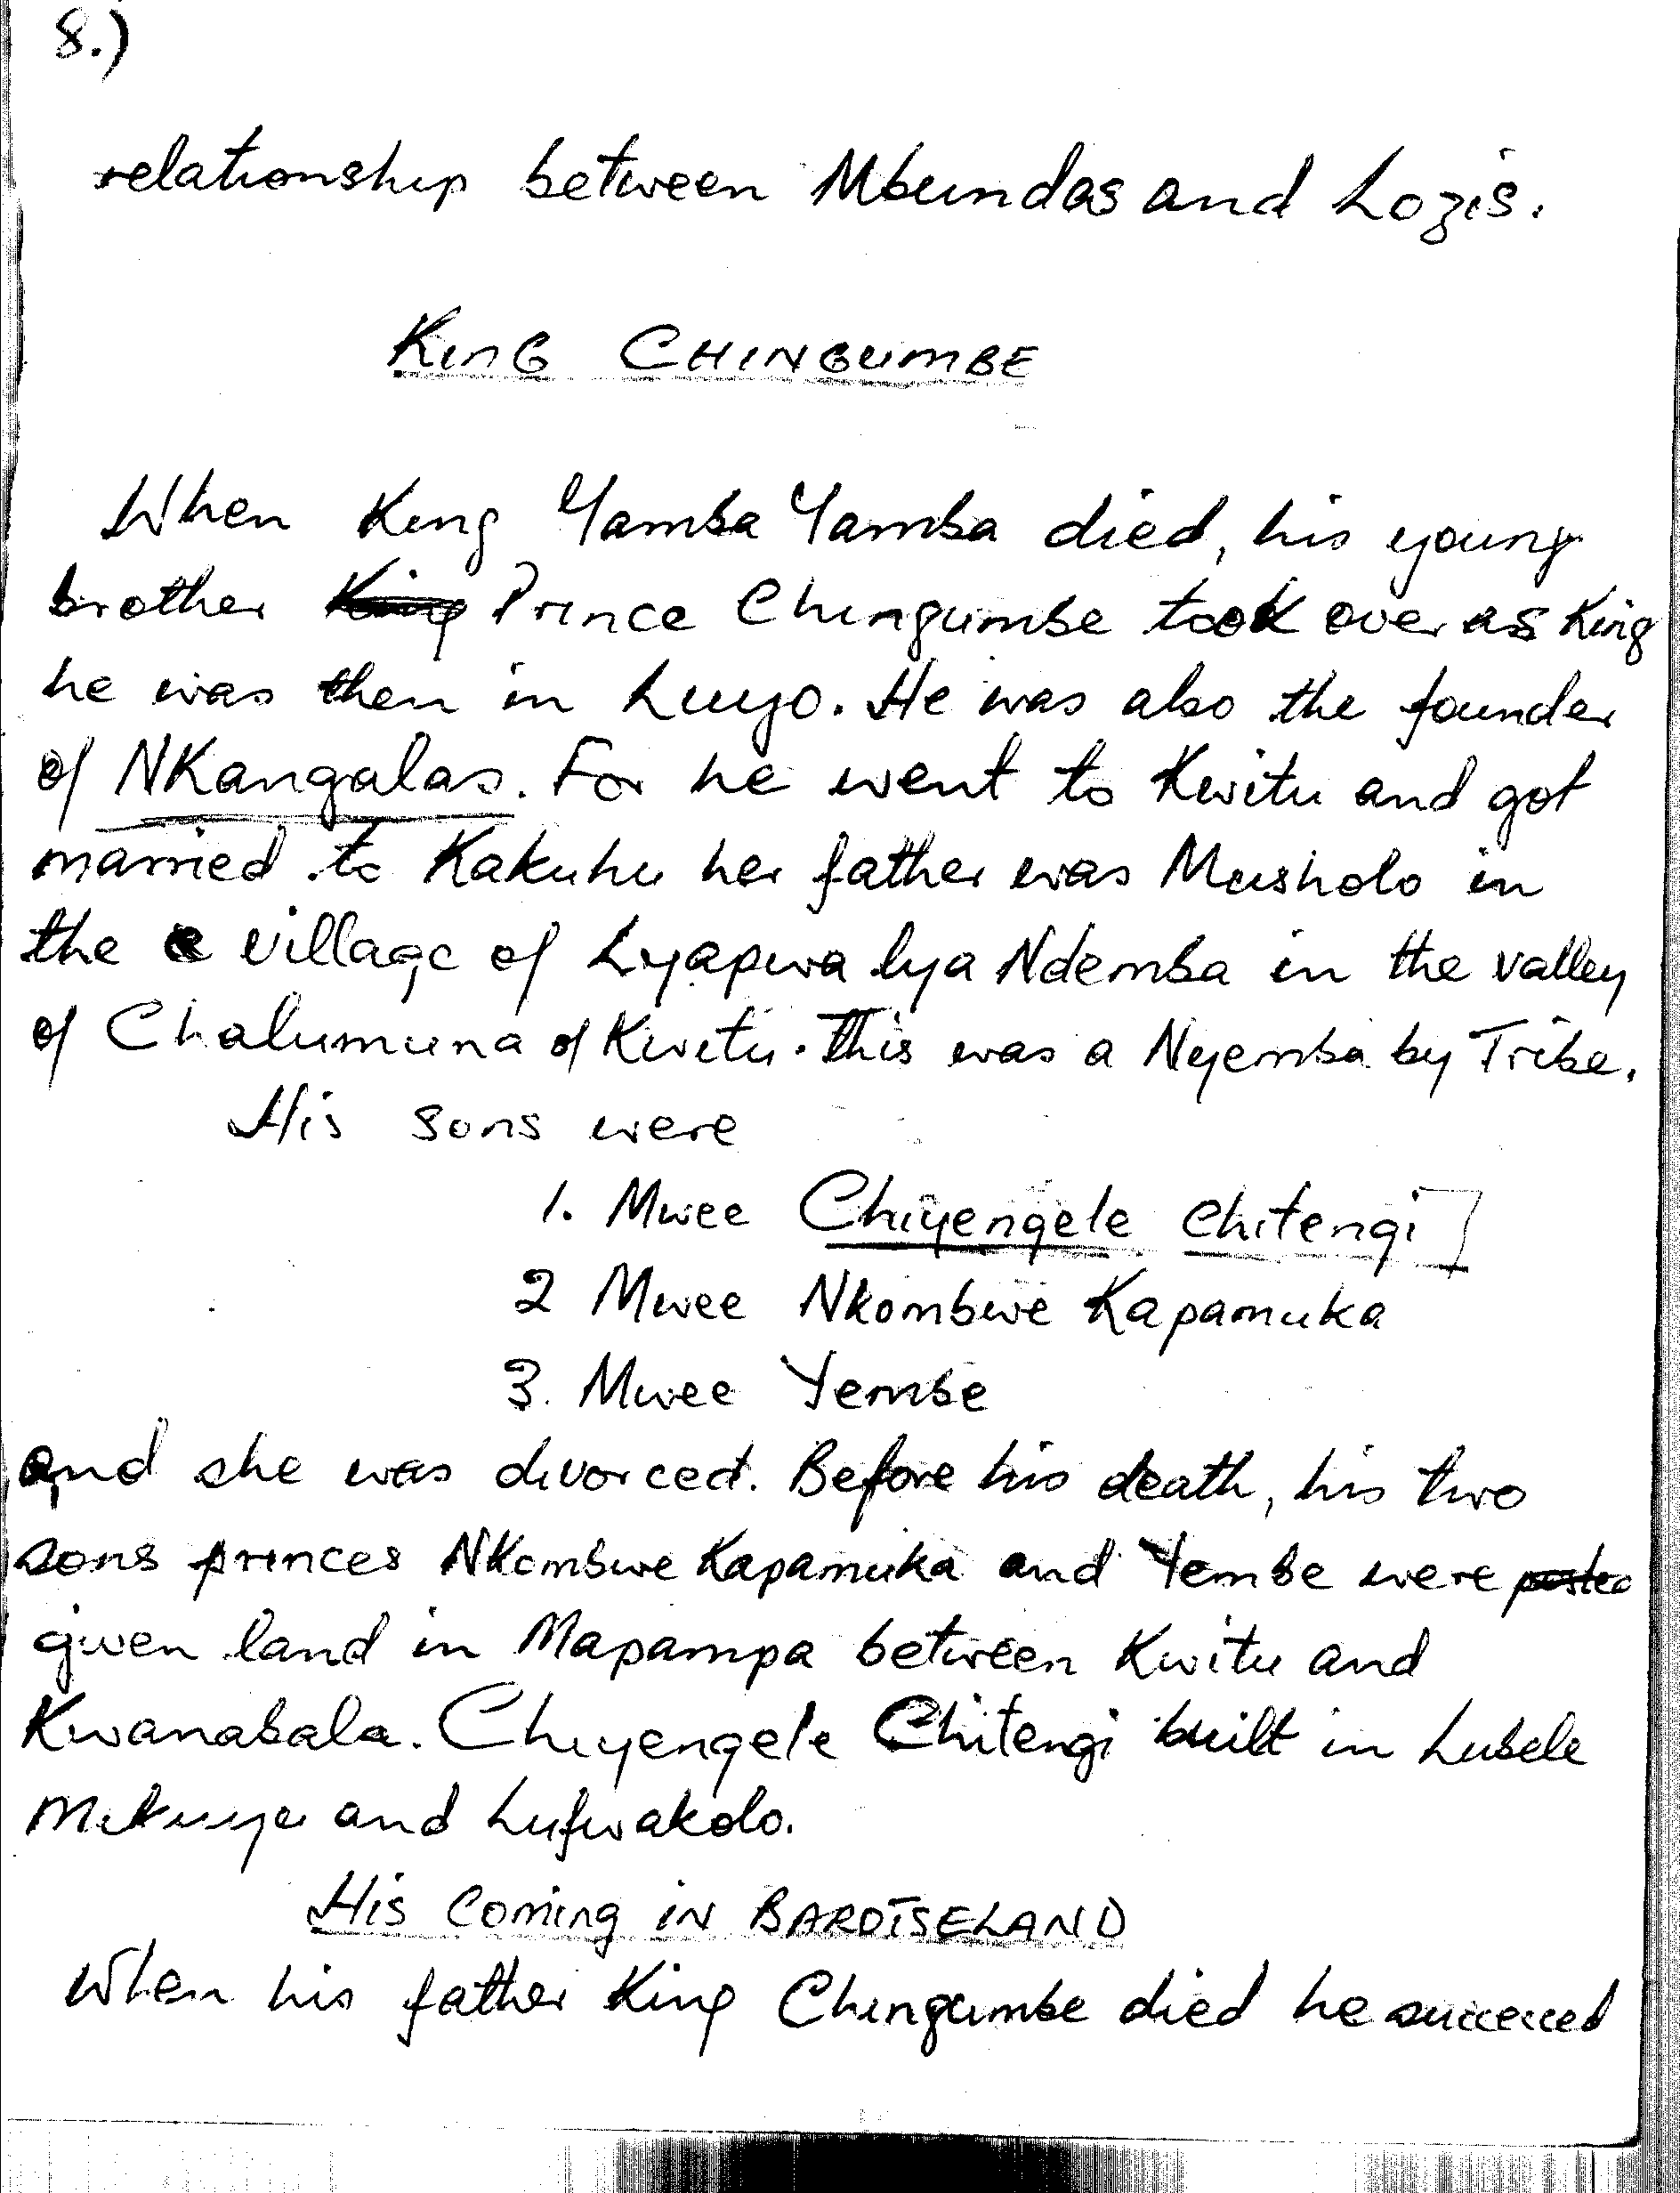 8.)
relationship between Mbundas and Lozis.
KING CHINGUMBE
When King Yamba Yamba died, his young
brother King Prince Chingumbe took over as King
he was then in Luyo. He was also the founder
of NKangalas. For he went to Kwitu and got
married to Kakuhu her father was Musholo in
the village of Lyapwa lya Ndemba in the valley
of Chalumuna of Kwitu. This was a Nyemba by Tribe.
His sons were
1. Mwee Chiyengele Chitengi]
2 Mwee Nkombwe Kapamuka
3. Mwee Yembe
and she was divorced. Before his death, his two
sons princes NKombwe Kapamuka and Yembe were posted
given land in Mapampa between Kwitu and
Kwanabala. Chiyengele Chitengi built in Lubele
and Lufwakolo.
His Coming IN BAROTSELAND
When his father King Chingumbe died he succeeed